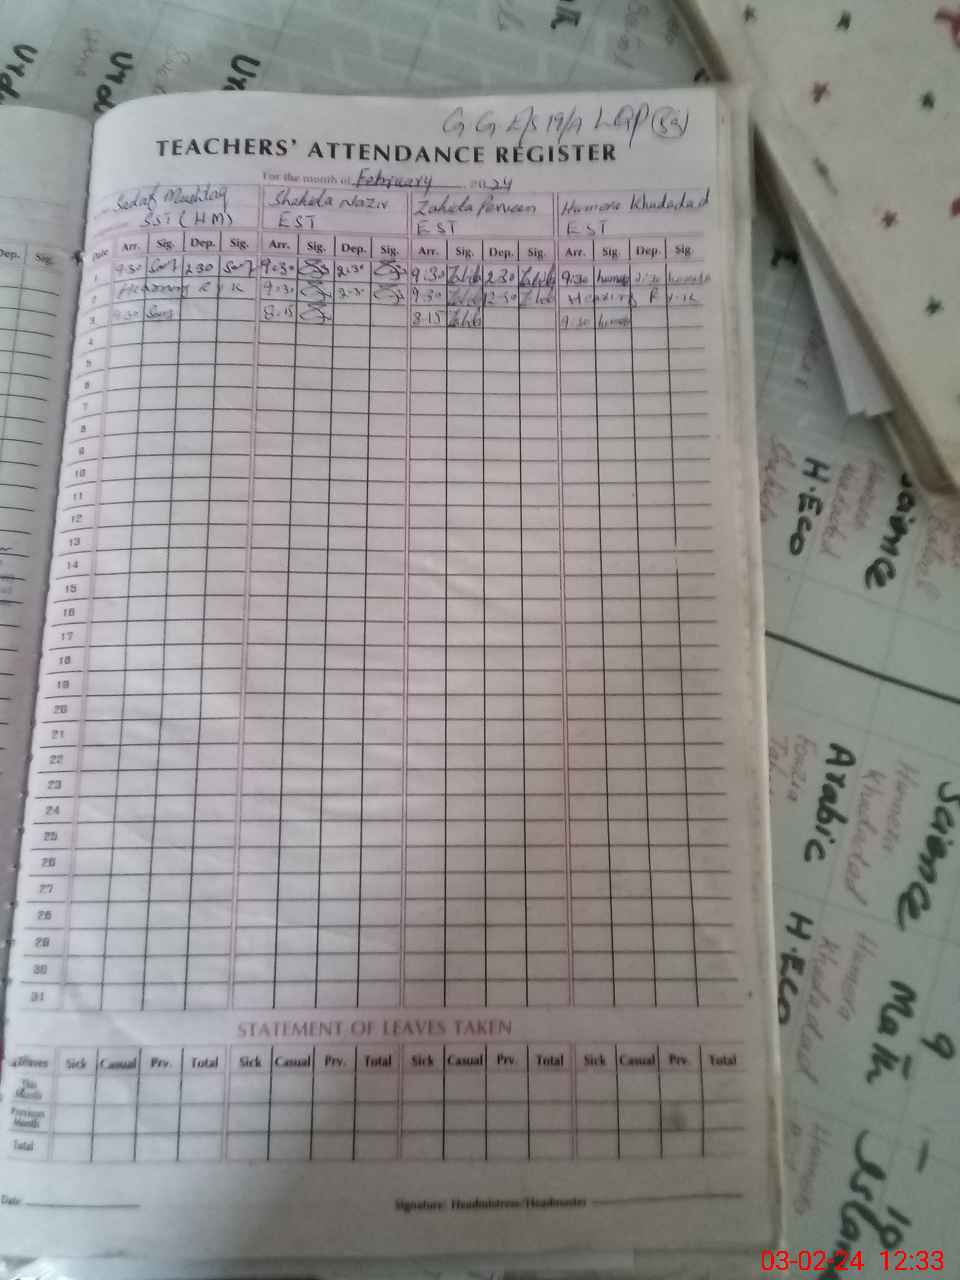 G G E/S 19/A LQP (39)
TEACHERS' ATTENDANCE REGISTER
For the month of February 2024
Sadaf Mushtaq Shahida Nazir Zahida Perveen Humera Khudadad
SST (HM) EST EST EST
Date Arr. Sig. Dep. Sig. Arr. Sig. Dep. Sig. Arr. Sig. Dep. Sig. Arr. Sig. Dep. Sig.
1 9:30 2:30 9:30 2:30 9:30 2:30 9:30 humera 2:30 humera
2 Hearing R Y K 9:30 2:30 9:30 2:30 Hearing R Y K
3 9:30 8:15 8:15 9:30 humera
4
5
6
7
8
9
10
11
12
13
14
15
16
17
18
19
20
21
22
23
24
25
26
27
28
29
30
31
STATEMENT OF LEAVES TAKEN
Leaves Sick Casual Prv. Total Sick Casual Prv. Total Sick Casual Prv. Total Sick Casual Prv. Total
This Month
Previous Month
Total
Date
Signature: Headmistress/Headmaster
Dep. Sig.
H.Eco
Science
Arabic
Humera Khudadad
Science
H.Eco
Humera Khudadad
Math
9
10
03-02-24 12:33